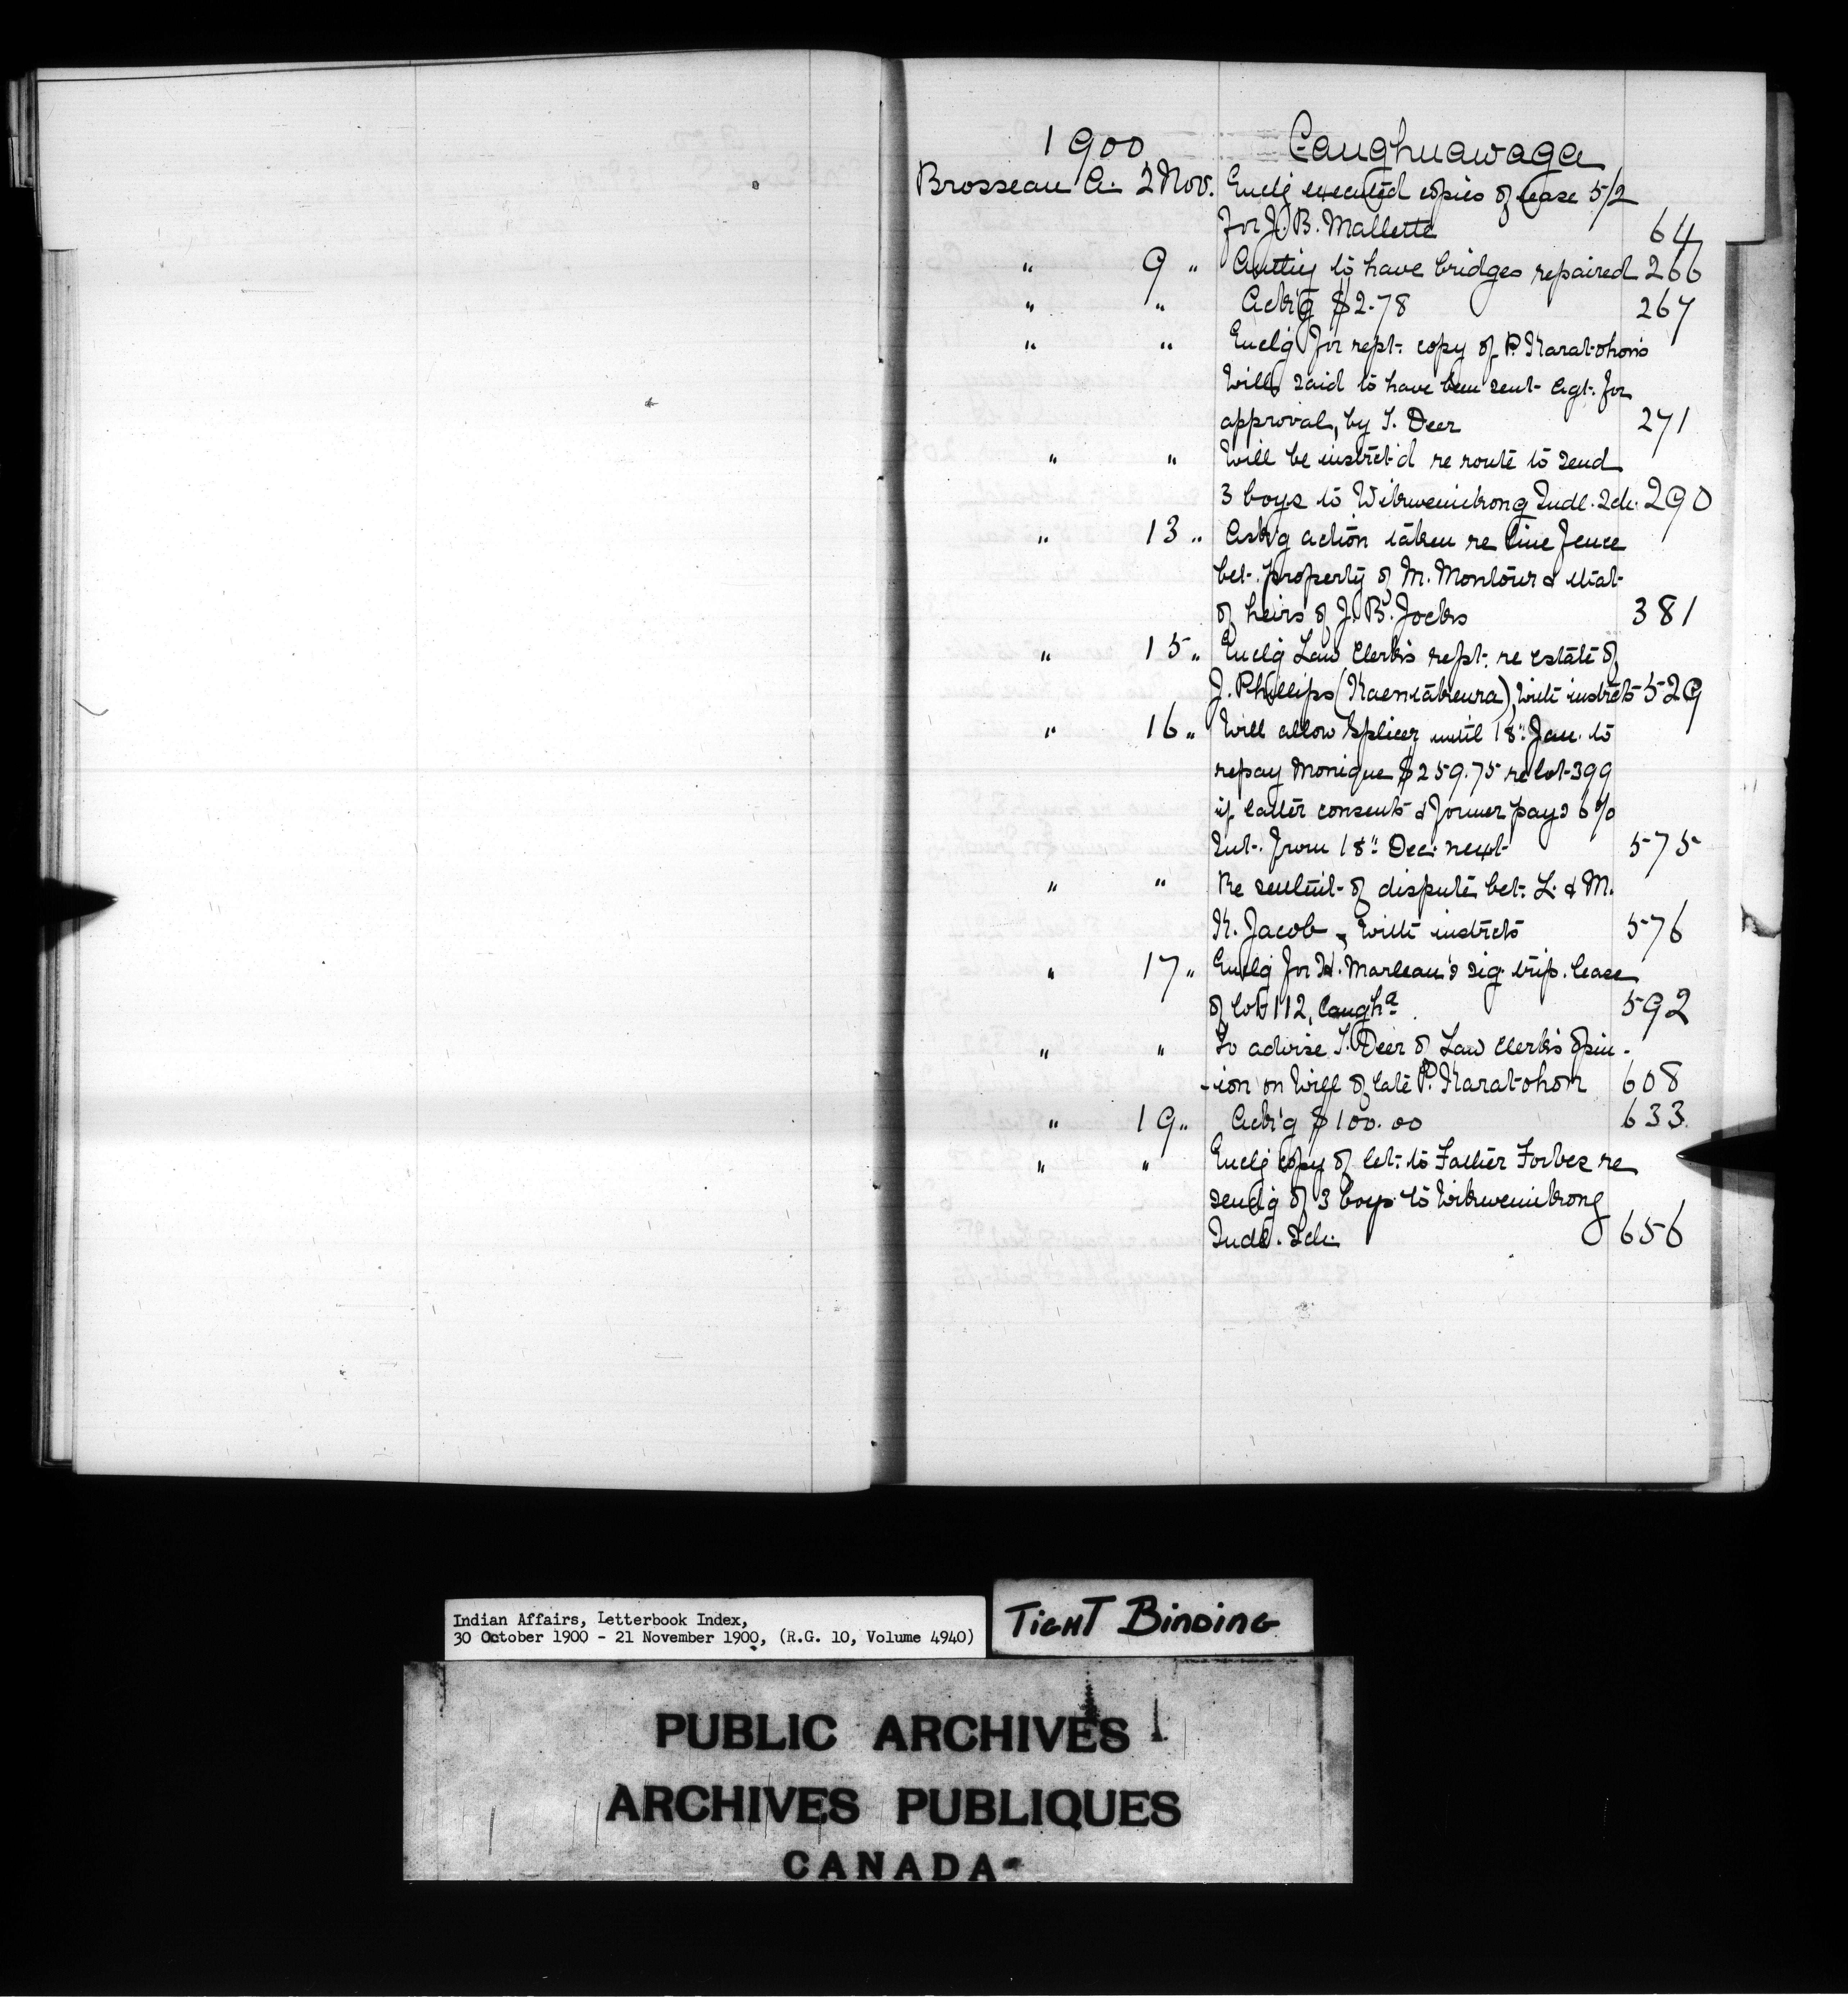 1900 Caughnawaga
Brosseau A. 2 Nov. Enclg executed copies of lease 5/2
for J. B. Mallette 64
" 9 " Authg to have bridges repaired 266
" " Ackg $2.78 267
" " Enclg for rept. copy of P. Karatohon's
Will, said to have been sent Agt. for
approval, by T. Deer 271
" " Will be instrct'd re route to send
3 boys to Wikwemikong Indl. Sch. 290
" 13 " Ask'g action taken re line fence
bet. property of M. Montour & that
of heirs of J. B. Jocks 381
" 15 " Enclg Law Clerk's rept. re estate of
J. Phillips (Kaentakeura), with instrcts 529
" 16 " Will allow Splicer until 18" Jan. to
repay Monique $259.75 re lot 399
if latter consents & former pays 6%
Int. from 18" Dec. next 575
" " Re settlmt. of dispute bet. L. & M.
K. Jacob, with instrcts 576
" 17 " Enclg for H. Marleau's sig. trip. lease
of lot 112, Caugha. 592
" " To advise T. Deer of Law Clerk's opin-
-ion on Will of late P. Karatohon 608
" 19 " Ack'g $100.00 633
" " Enclg copy of let. to Father Forbes re
send'g of 3 boys to Wikwemikong
Indl. Sch. 656
Indian Affairs, Letterbook Index,
30 October 1900 - 21 November 1900, (R.G. 10, Volume 4940)
TIGHT BINDING
PUBLIC ARCHIVES
ARCHIVES PUBLIQUES
CANADA